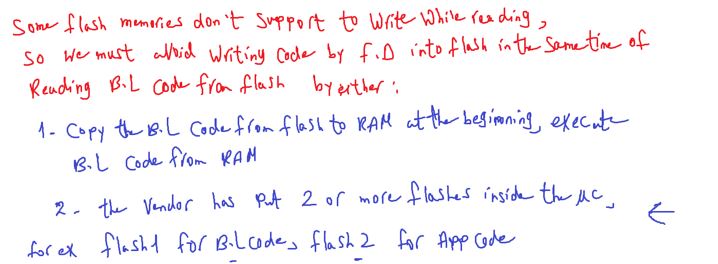 Some flash memories don't support to write while reading,
So we must avoid writing code by F.D into flash in the same time of
Reading B.L code from flash by either :
1- Copy the B.L code from flash to RAM at the beginning, execute
B.L code from RAM
2- the Vendor has put 2 or more flashes inside the µc, ←
for ex flash1 for B.L code, flash 2 for App code